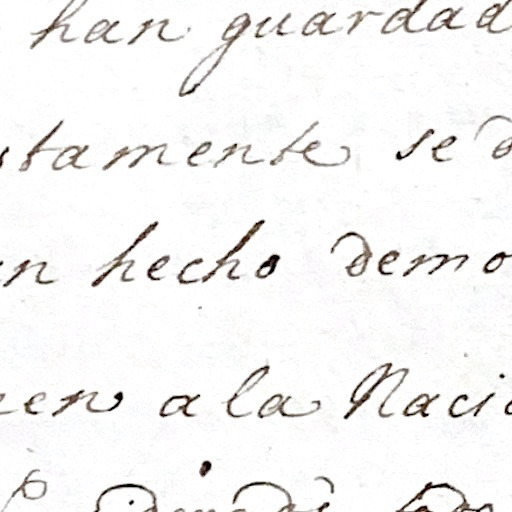 han guardad
stamente se d
n hecho demo
en a la Naci